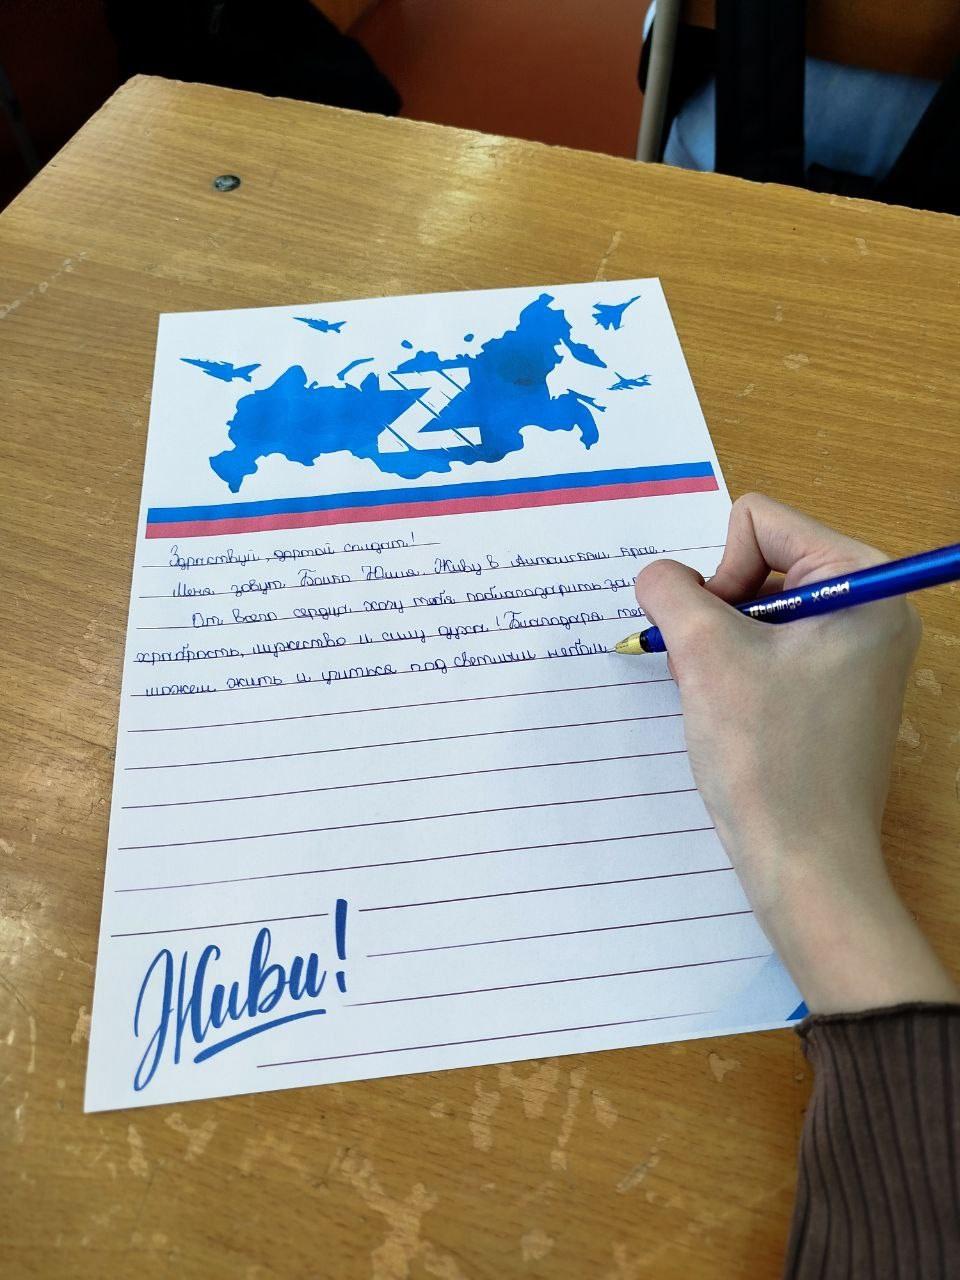 Z
Здраствуй, дорогой солдат!
Меня зовут Юлия. Живу в Алтайском крае.
От всего сердца хочу тебя поблагодарить за
храбрость, мужество и силу духа! Благодаря
можем жить и учиться под светлым небом
berlingo xGold
Живи!